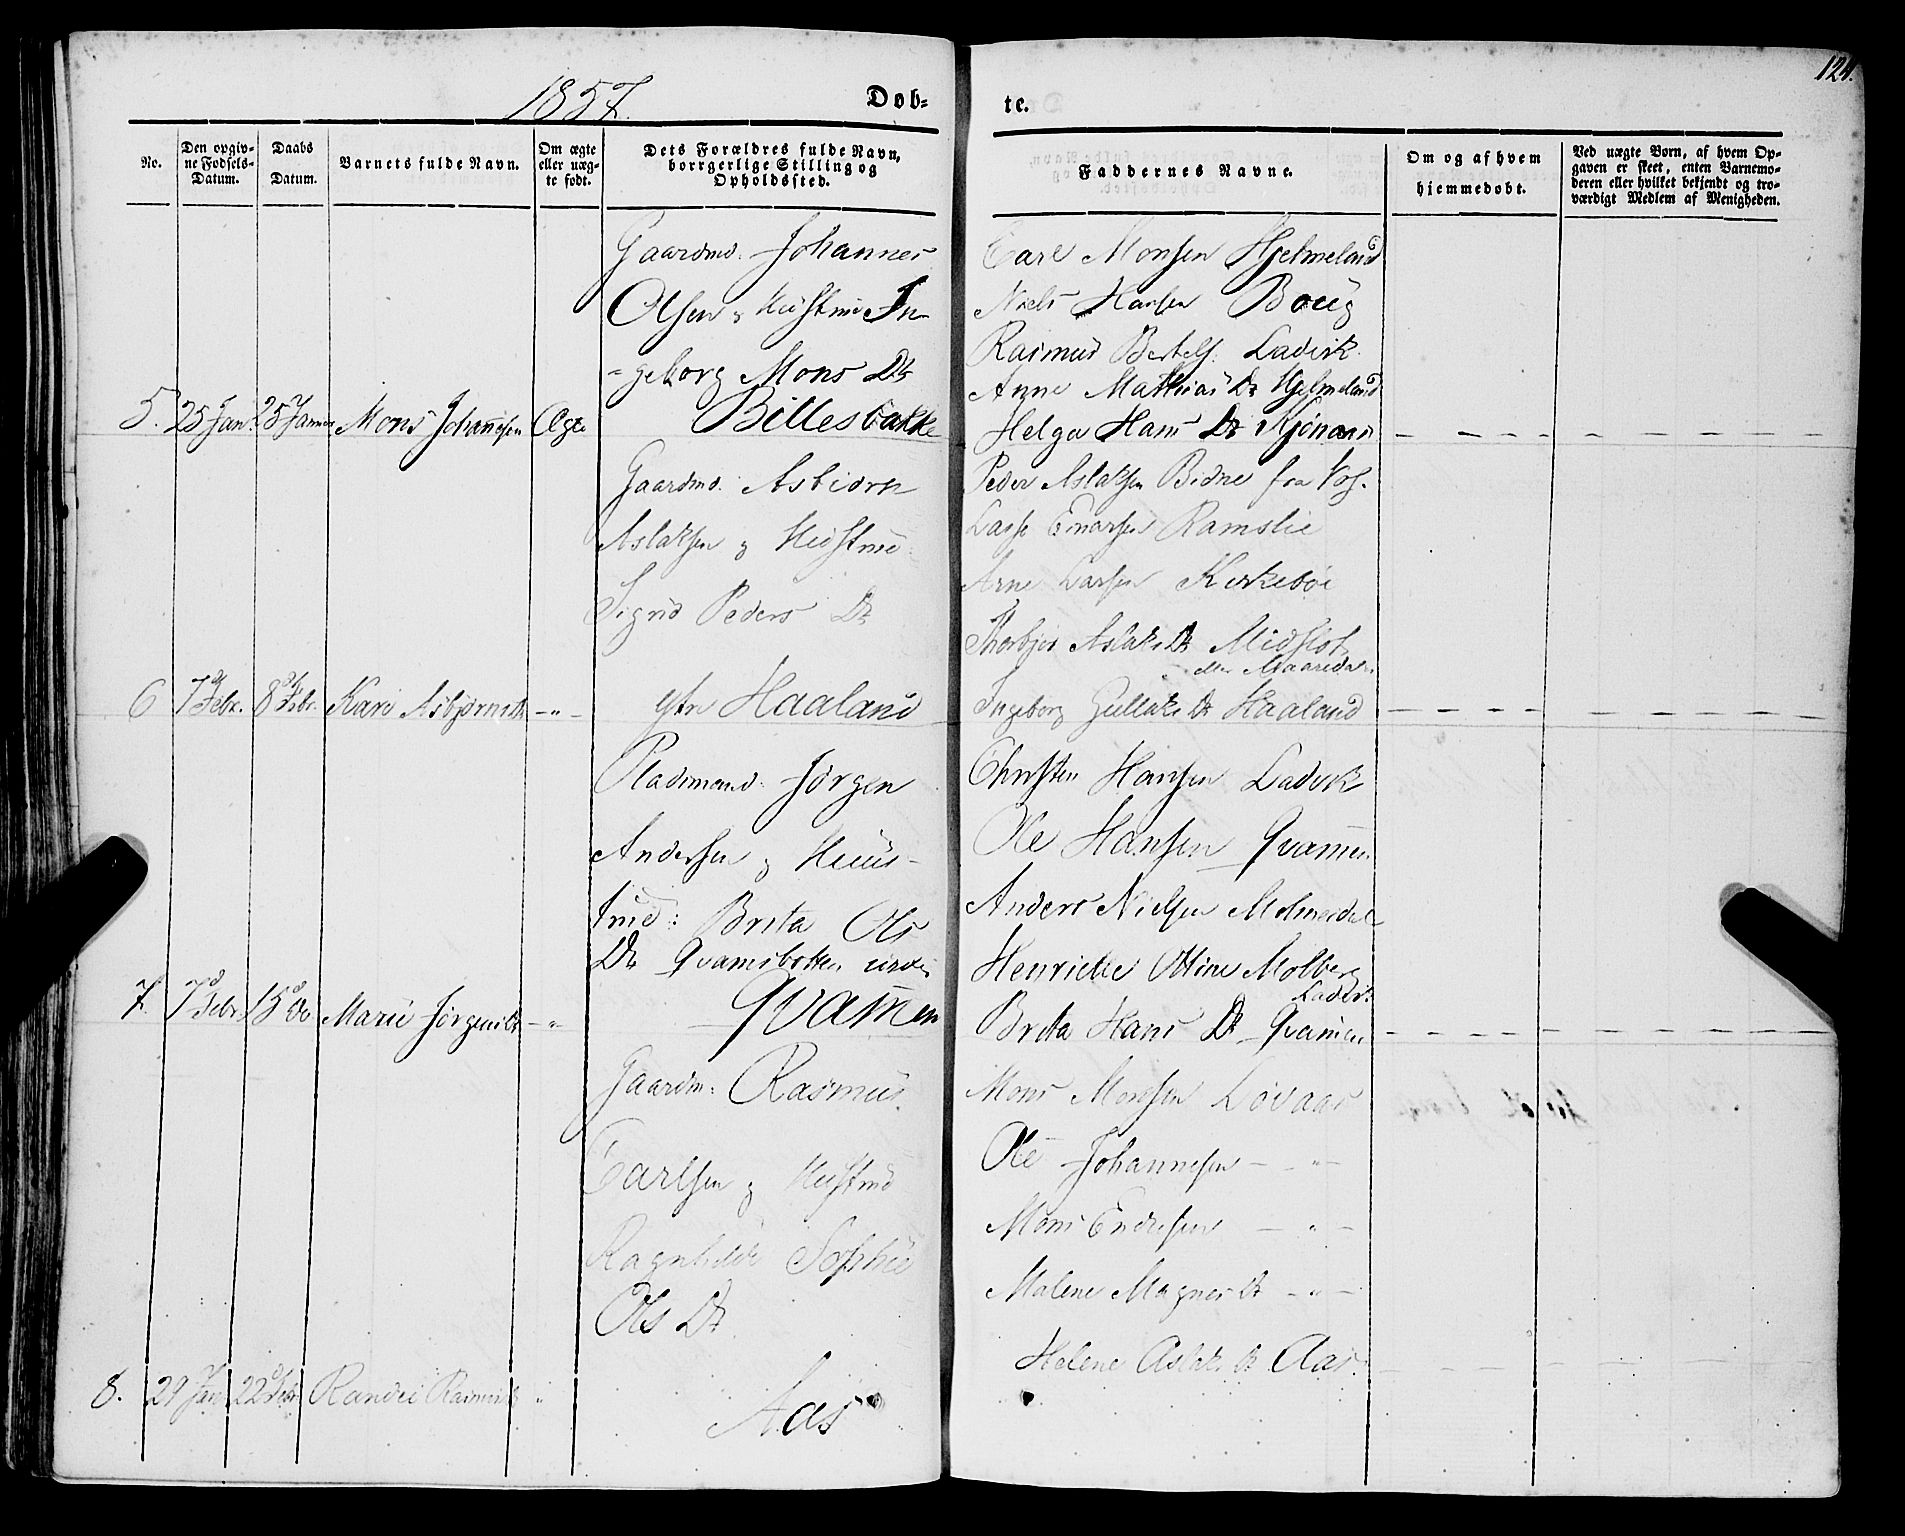 124.
1857.
Døb-
te.
No.
Den opgiv-
ne Fødsels-
Datum.
Daabs
Datum.
Barnets fulde Navn.
Om ægte
eller uæg-
te født.
Dets Forældres fulde Navn,
borrgerlige Stilling og
Opholdssted.
Faddernes Navne.
Om og af hvem
hjemmedøbt.
Ved uægte Børn, af hvem Op-
gaven er skeet, enten Barnemo-
deren eller hvilket bekjendt og tro-
værdigt Medlem af Menigheden.
5. 25 Jan. 25 Januar Mons Johannesen Ægte
Gaardmd. Johannes
Olsen & Hustrue In-
-geborg Mons Dtr
Billesbakke
Carl Monsen Hjelmeland
Niels Hansen Boug
Rasmus Bertels. Ladvik.
Anne Mathias Dr Hjelmeland
Helga Hans Dr Kjønaas
6 7d Febr. 8d Febr. Kari Asbjørnsdr -"-
Gaardmd. Asbiørn
Aslaksen & Hustrue
Sigrid Peders Dr
ytre Haaland
Peder Aslaksen Bidne fra Vos.
Lasse Einarsen Ramslie
Arne Larsen Kirkebøe
Thorbjør Aslaks Dr Midslot
Ingeborg Gullaks Dr Haaland
7. 7d Febr 15d Do Marie Jørgensdr -"-
Pladsmand. Jørgen
Andersen & Huus-
true: Brita Ols
Dtr Qvamsbotten under
Qvammen
Christen Hansen Ladvik
Ole Hansen Qvammen
Anders Nielsen Molmesdal
Henriette Ottine Molberg
Ladvik
Brita Hans Dr Qvammen
8. 29 Jan 22d Febr Randei Rasmusdr "
Gaardm: Rasmus
Carlsen & Hustrue
Ragnhilde Sophie
Ols Dr
Aas
Mons Monsen Lovaas
Ole Johannesen - " -
Mons Endresen - " -
Malene Magnes Dr - " -
Helene Aslaks Dr Aas.